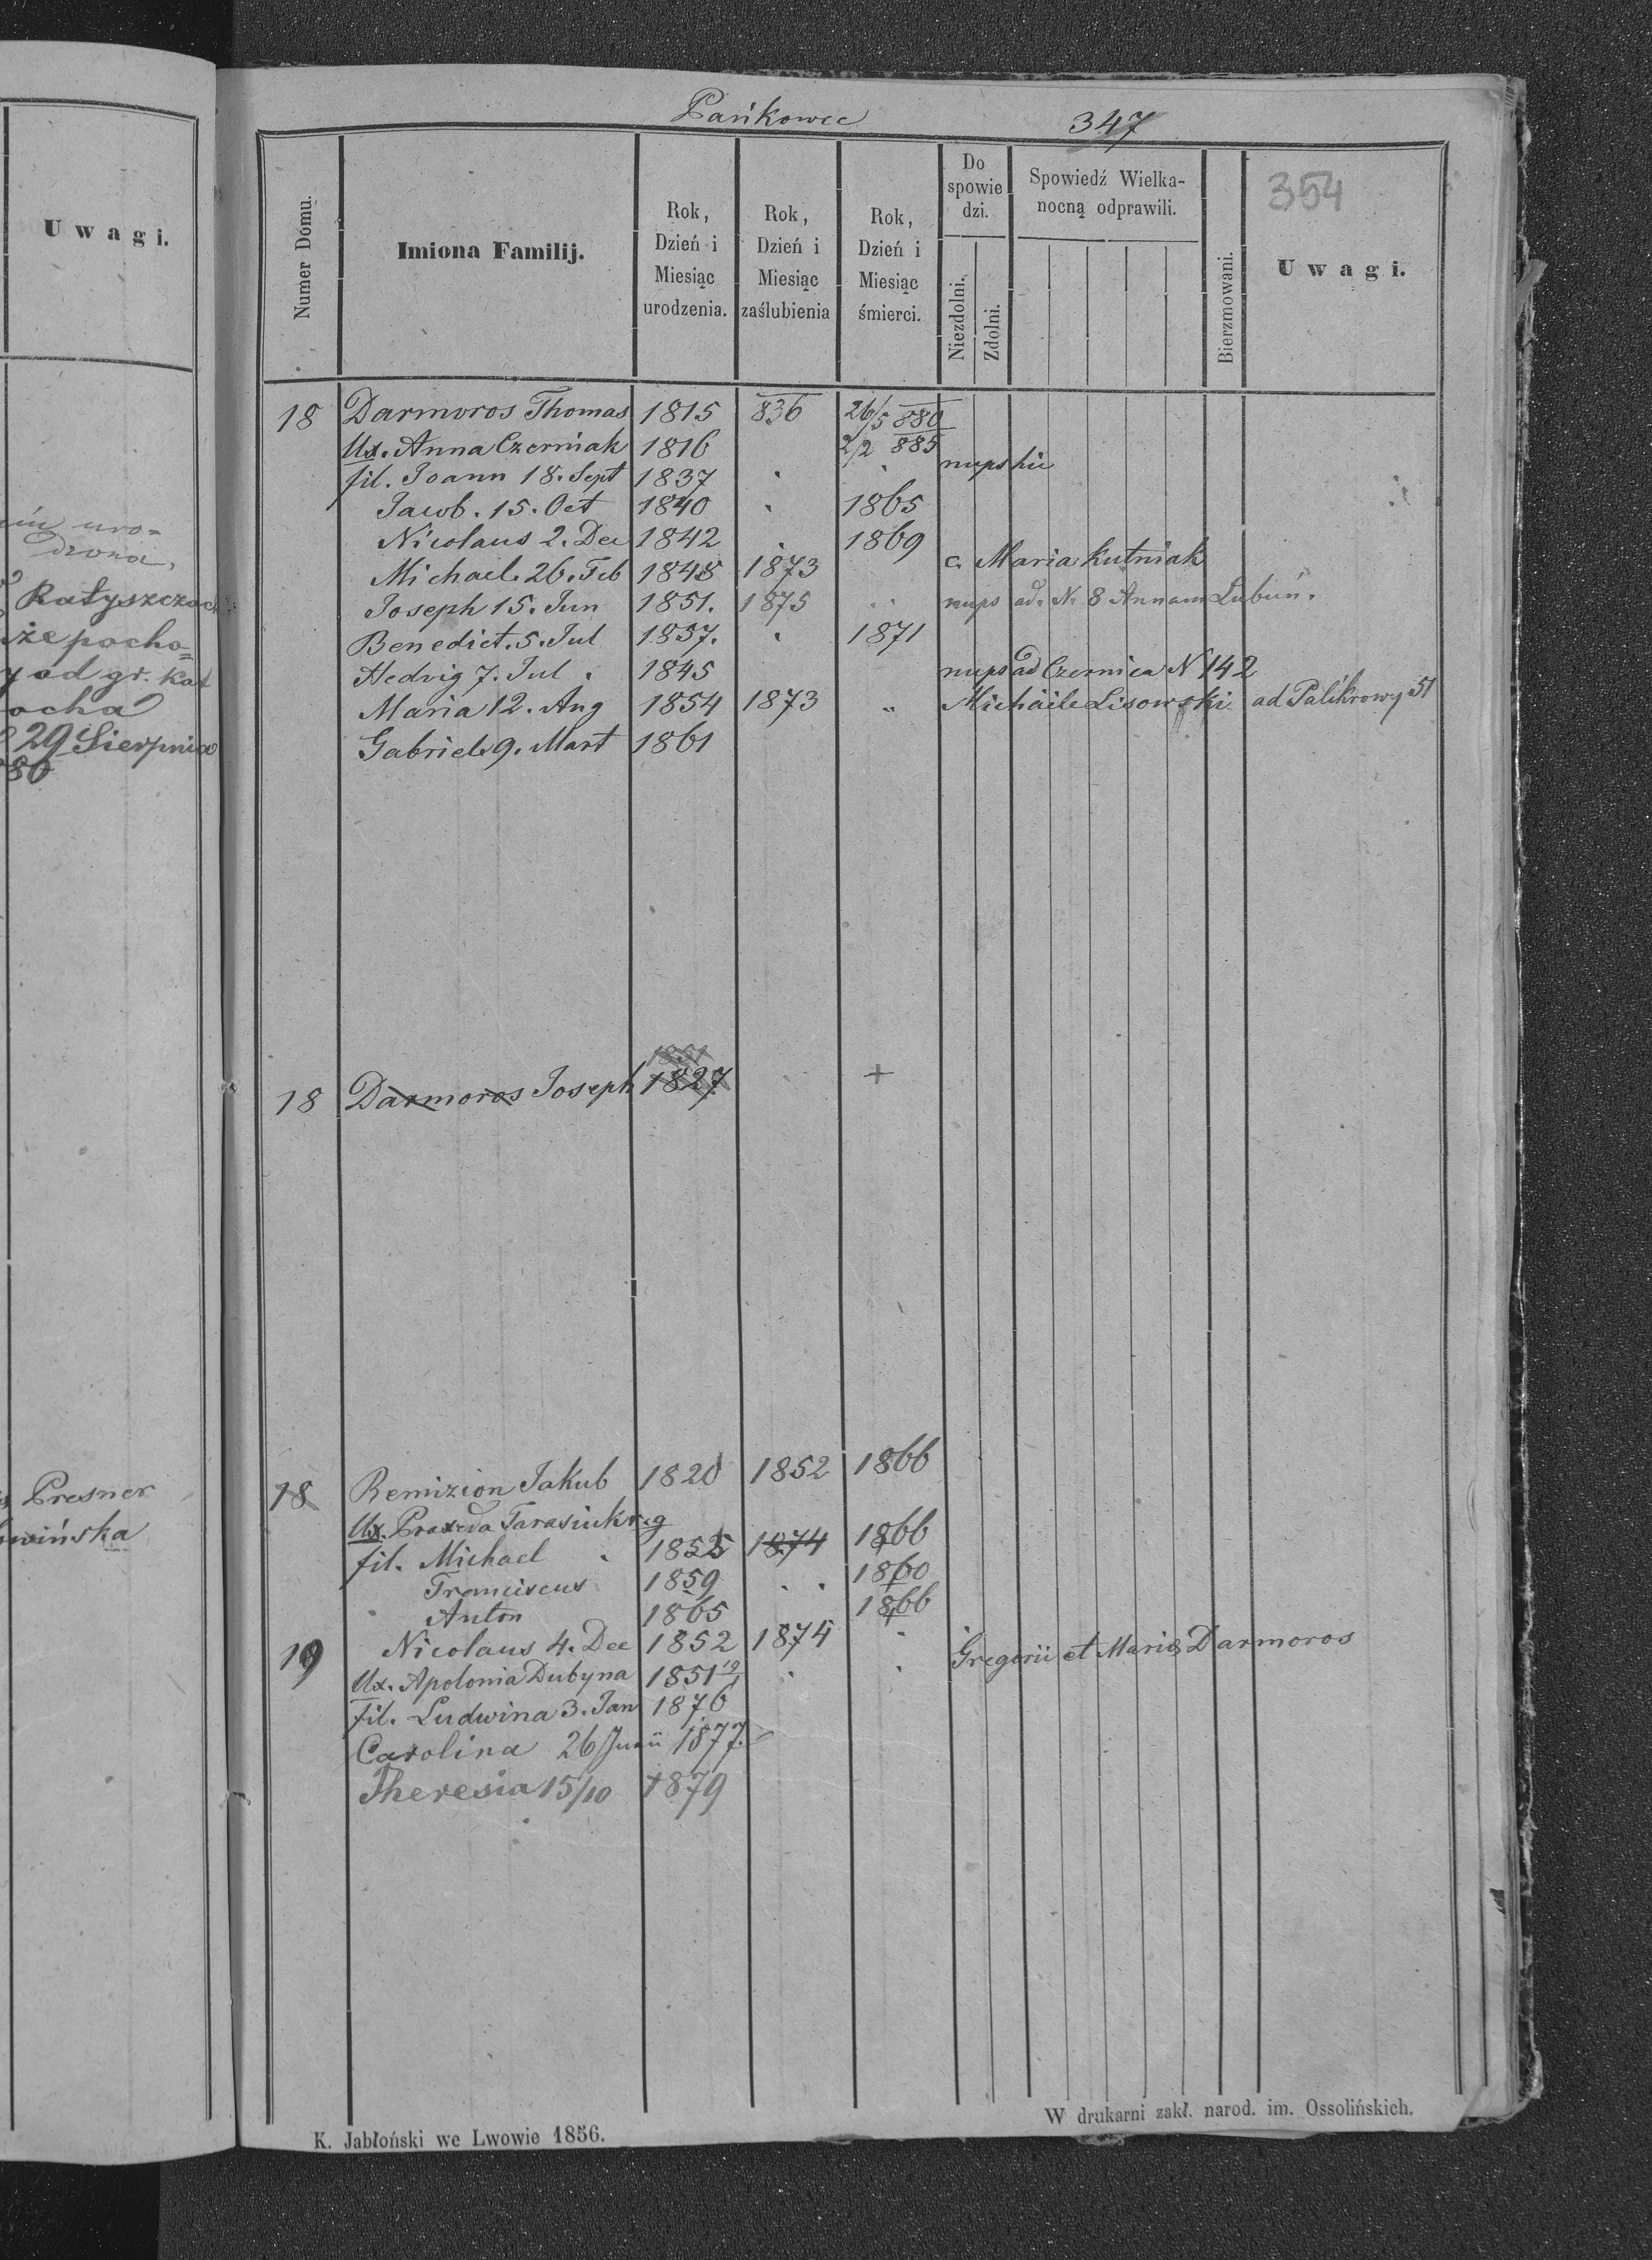 Uwagi.
uro=
dzona,
Ratyszczach
że pocho=
od gr. kat
ocha
29 Sierpnia
80
Presner
wińska
Pańkowce 347
354
Numer Domu.
Imiona Familij.
Rok, Dzień i Miesiąc urodzenia.
Rok, Dzień i Miesiąc zaślubienia
Rok, Dzień i Miesiąc śmierci.
Do spowiedzi.
Niezdolni.
Zdolni.
Spowiedź Wielkanocną odprawili.
Bierzmowani.
Uwagi.
18 Darmoros Thomas 1815 836 26/5 880
Ux. Anna Czerniak 1816 2/2 885
fil. Joann 18. Sept 1837 nups hic
Jacob. 15. Oct 1840 1865
Nicolaus 2. Dec 1842 1869
Michael. 26. Feb 1848 1873 c. Maria Kutniak
Joseph 15. Jun 1851. 1875 nups ad. N. 8 Annam Lubuń.
Benedict. 5. Jul 1857. 1871
Hedvig 7. Jul 1845 nups ad Czernica N 142
Maria 12. Aug 1854 1873 " Michaile Lisowski ad Palikrowy 51
Gabriel. 9. Mart 1861
1851
18 Darmoros Joseph 1827 +
18 Remizion Jakub 1820 1852 1866
Ux. Praxeda Tarasiuk r. g
fil. Michael 1855 1874 1866
Franciscus 1859 1860
Anton 1865 1866
19 Nicolaus 4. Dec 1852 1874 Gregorii et Maria Darmoros
Ux. Apolonia Dubyna 1851
Fil. Ludwina 3. Jan 1876
Carolina 26 Junii 1877.
Theresia 15/10 1879
K. Jabłoński we Lwowie 1856.
W drukarni zakł. narod. im. Ossolińskich.